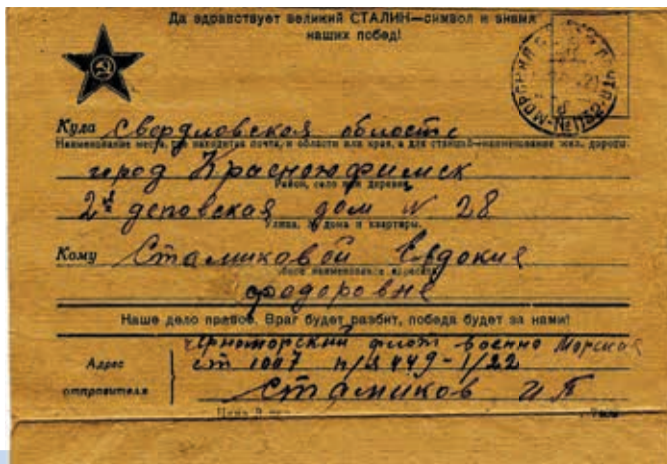 Да здравствует великий СТАЛИН—символ и знамя
наших побед!
Куда Свердловская область
Наименование места, где находится почта, и области или края, а для станций—наименование жел. дороги
город Красноуфимск
Район, село или деревня
2я деповская дом N 28
Улица, № дома и квартиры.
Кому Стамиковой Евдокие
наименование адресата
федоровне
Наше дело правое. Враг будет разбит, победа будет за нами!
Черноморский флот военно Морская
Адрес
отправителя
ст 1007 п/я 449-1/22
Стамиков И П